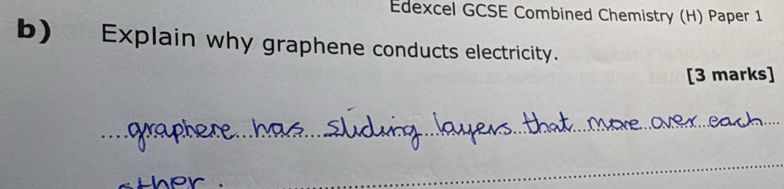 Edexcel GCSE Combined Chemistry (H) Paper 1
b) Explain why graphene conducts electricity.
[3 marks]
graphene has sliding layers that move over each
other.